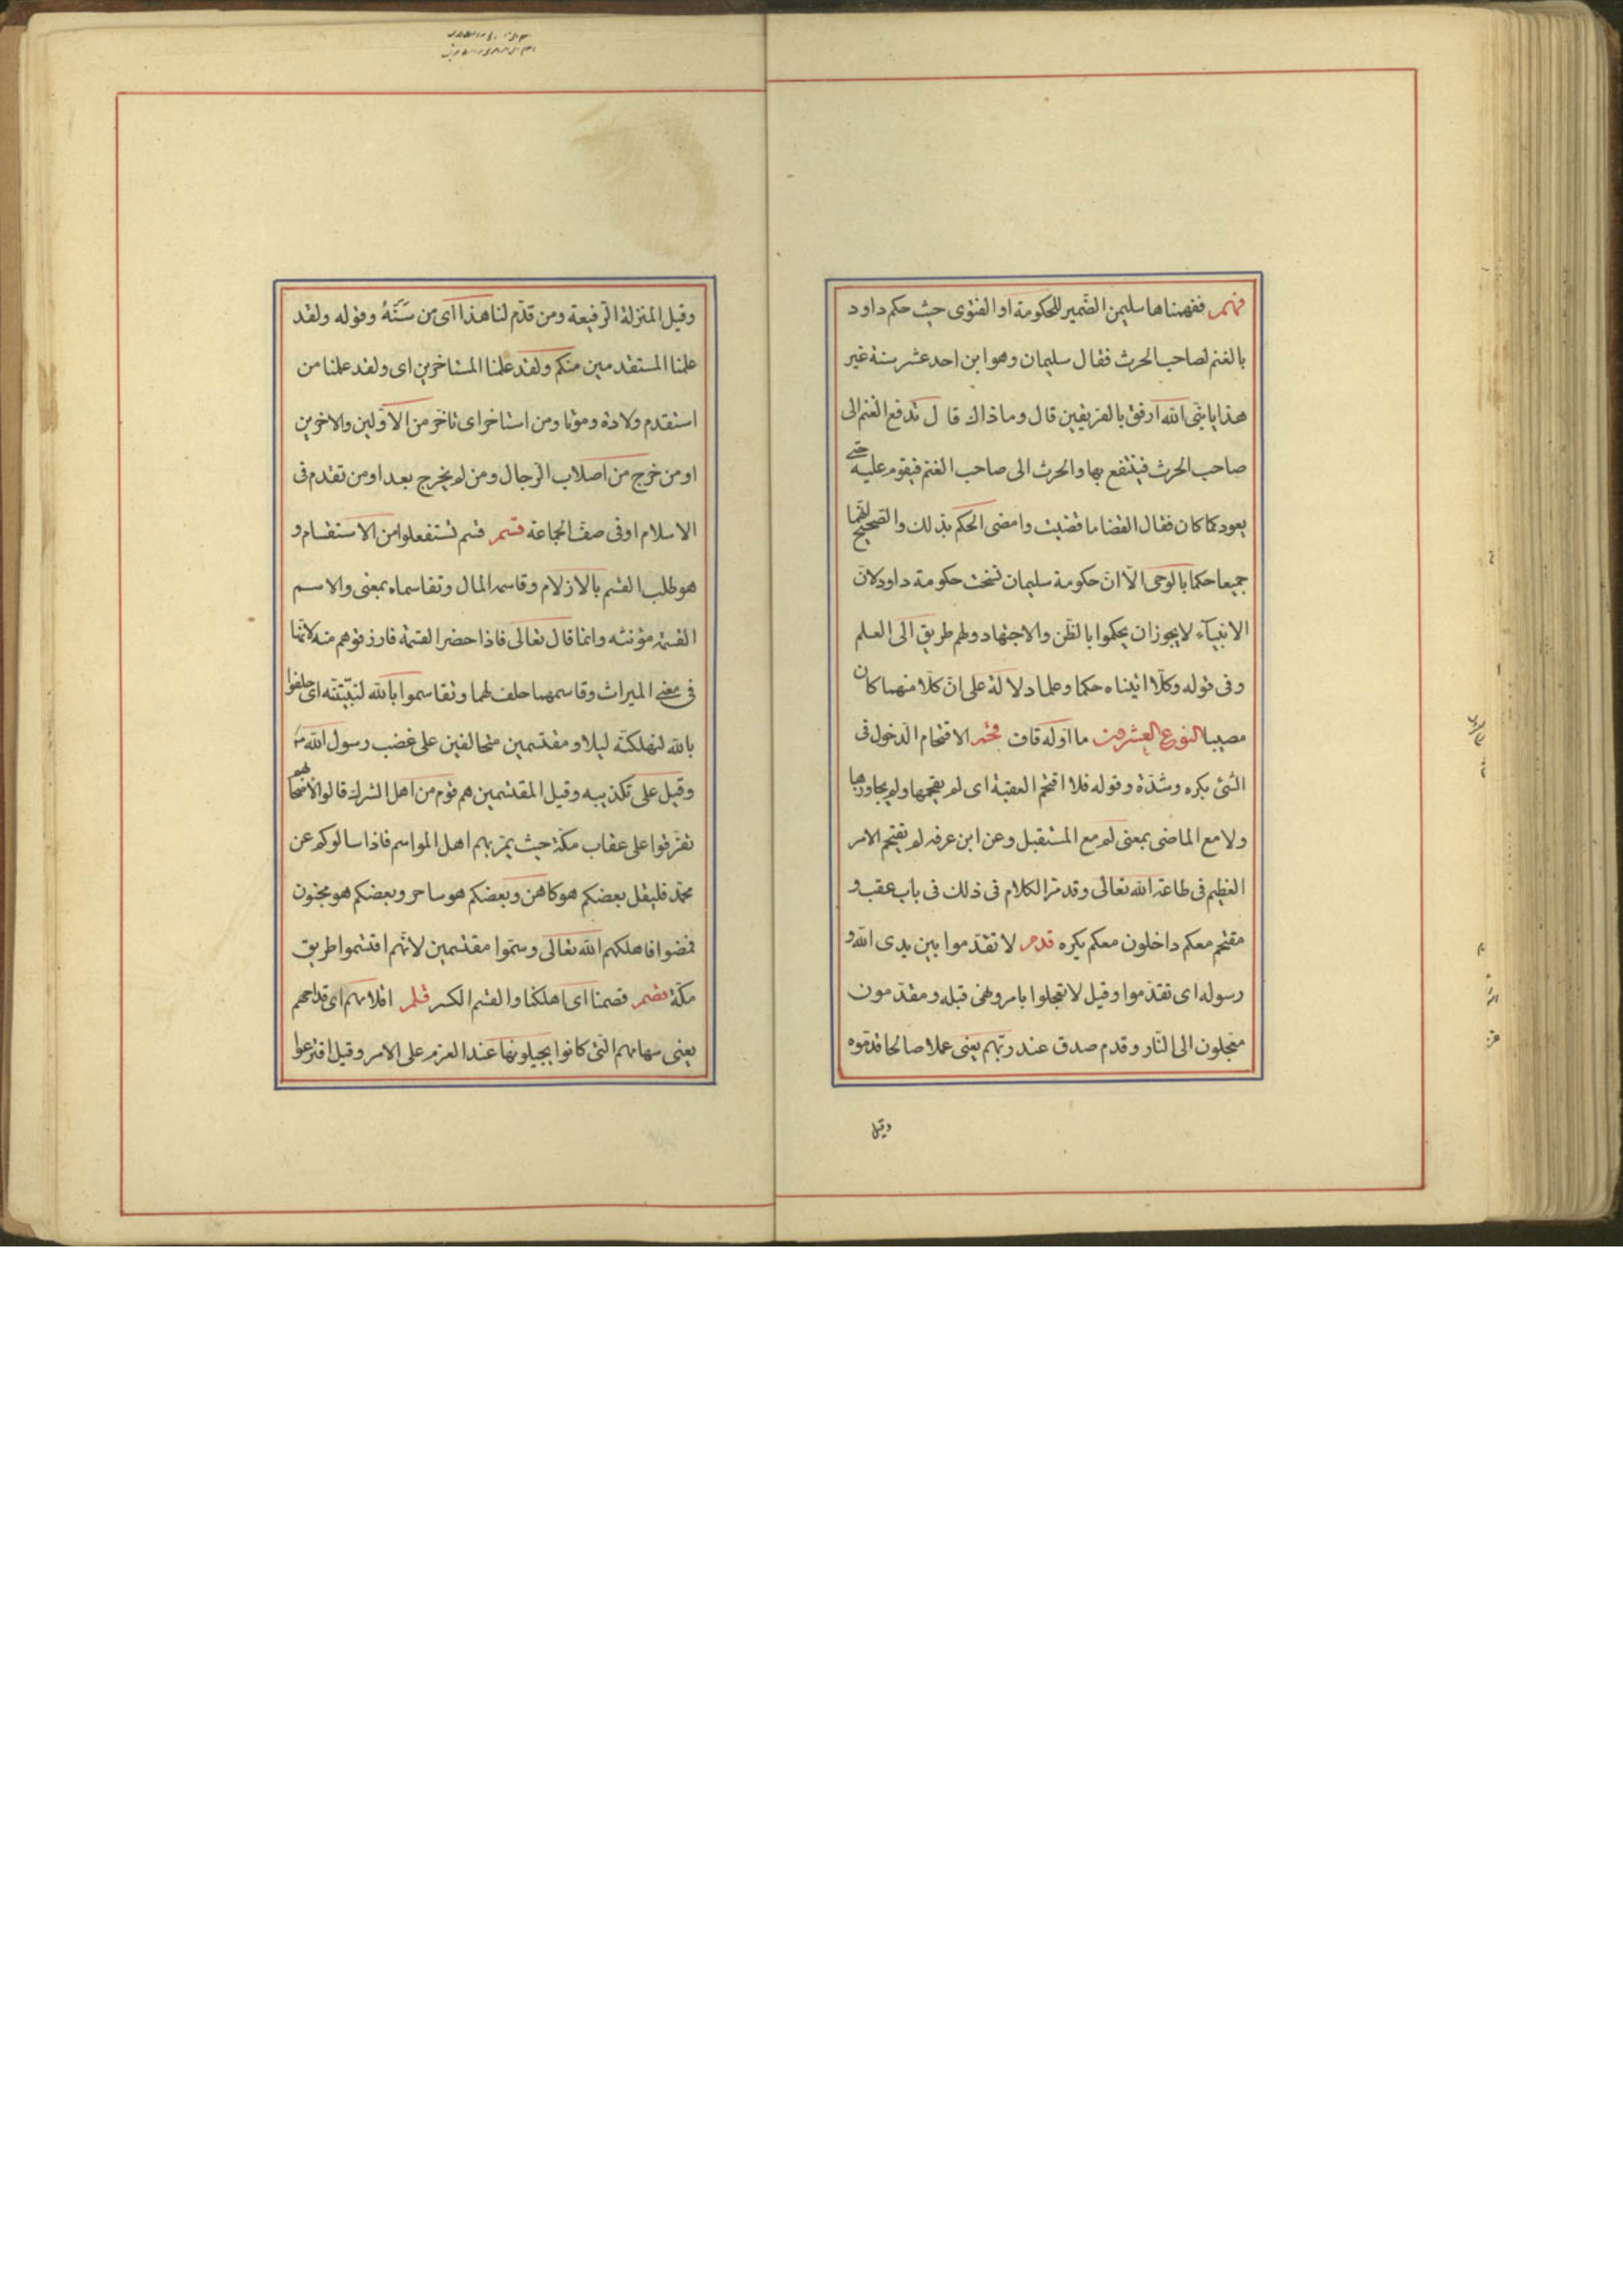 فهم ففهمناها سليمن الضمير للحكومة او الفتوى حيث حكم داود
بالغنم لصاحب الحرث فقال سليمان وهو ابن احد عشر سنة غير
هذا يا نبى الله ارفق بالفريقين قال وما ذاك قال تدفع الغنم الى
صاحب الحرث فينتفع بها والحرث الى صاحب الغنم فيقوم عليه حتى
يعود كما كان فقال القضا ما قضيت وامضى الحكم بذلك والصحيح انهما
جميعا حكما بالوحى الّا انّ حكومة سليمان نسخت حكومة داود لانّ
الانبيآء لا يجوز ان يحكموا بالظّن والاجتهاد ولهم طريق الى العلم
وفى قوله وكلّا اتيناه حكما وعلما دلالة على انّ كلّا منهما كان
مصيبا النوع العشرون ما اوّله قاف قحم الاقتحام الدّخول فى
الشئ بكره وشدّة وقوله فلا اقتحم العقبة اى لم يقحمها ولم يجاوزها
ولا مع الماضى بمعنى لم مع المستقبل وعن ابن عرفه لم يقتحم الامر
العظيم فى طاعة الله تعالى وقد مرّ الكلام فى ذلك فى باب عقب و
مقتحم معكم داخلون معكم بكره قدم لا تقدّموا بين يدى الله و
رسوله اى تقدّموا وقيل لا تعجلوا بامر ونهى قبله ومقدّمون
معجلون الى النّار وقدم صدق عند ربّهم يعنى عملا صالحا قدّموه
وقيل
وقيل المنزلة الرّفيعة ومن قدّم لنا هذا اى من سَنَّهُ وقوله ولقد
علمنا المستقدمين منكم ولقد علمنا المستاخرين اى ولقد علمنا من
استقدم ولادة وموتا ومن استاخر اى تاخّر من الاوّلين والاخرين
او من خرج من اصلاب الرّجال ومن لم يخرج بعد او من تقدم فى
الاسلام او فى صفّ الجماعة قسم قسم تستفعلوا من الاستقسام و
هو طلب القسم بالازلام وقاسمه المال وتقاسماه بمعنى والاسم
القسمة مؤنثه وانما قال تعالى فاذا حضر القسمة فارزقوهم منه لانّها
فى معنى الميراث وقاسمهما حلف لهما وتقاسموا بالله لنبيّتنّه اى حلفوا
بالله لنهلكنّه ليلا ومقتسمين متحالفين على غضب رسول الله
وقيل على تكذيبه وقيل المقتسمين هم قوم من اهل الشرك قالوا لاصحابهم
تفرّقوا على عقاب مكّة حيث يمرّ بهم اهل المواسم فاذا سالوكم عن
محمّد فليقل بعضكم هو كاهن وبعضكم هو ساحر وبعضكم هو مجنون
فمضوا فاهلكهم الله تعالى وسمّوا مقتسمين لانّهم اقتسموا طريق
مكّة قصم قصمنا اى اهلكنا والقسم الكسر قلم اقلامهم اى قداحهم
يعنى سهامهم التى كانوا يجيلونها عند العزم على الامر وقيل اقترعوا